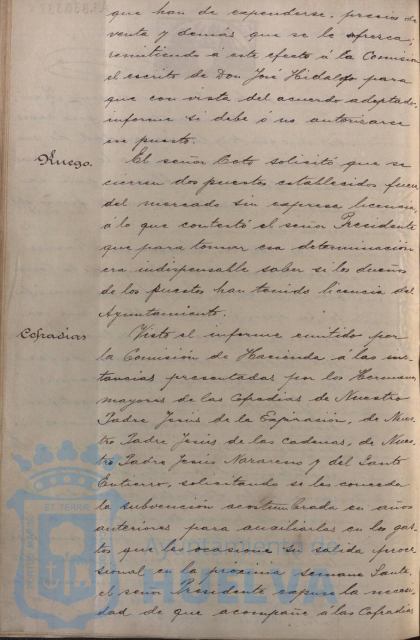 que han de expenderse, precios de
venta y demás que se le ofrezca;
remitiendo á este efecto á la Comisión
el escrito de Don José Hidalgo para
que con vista del acuerdo adoptado,
informe si debe ó no autorizarse
un puesto.
Ruego.
El señor Coto solicitó que se
cierren dos puestos establecidos fuera
del mercado sin expresa licencia,
á lo que contestó el señor Presidente
que para tomar esa determinación
era indispensable saber si los dueños
de los puestos han tenido licencia del
Ayuntamiento.
Cofradías
Visto el informe emitido por
la Comisión de Hacienda á las ins-
tancias presentadas por los Hermanos
mayores de las Cofradías de Nuestro
Padre Jesús de la Expiración, de Nues-
tro Padre Jesús de las cadenas, de Nues-
tro Padre Jesús Nazareno y del Santo
Entierro, solicitando se les conceda
la subvención acostumbrada en años
anteriores para auxiliarlas en los gas-
tos que les ocasione su salida proce-
sional en la próxima Semana Santa,
el señor Presidente expuso la necesi-
dad de que acompañe á las Cofradías
Ayuntamiento de
HUELVA